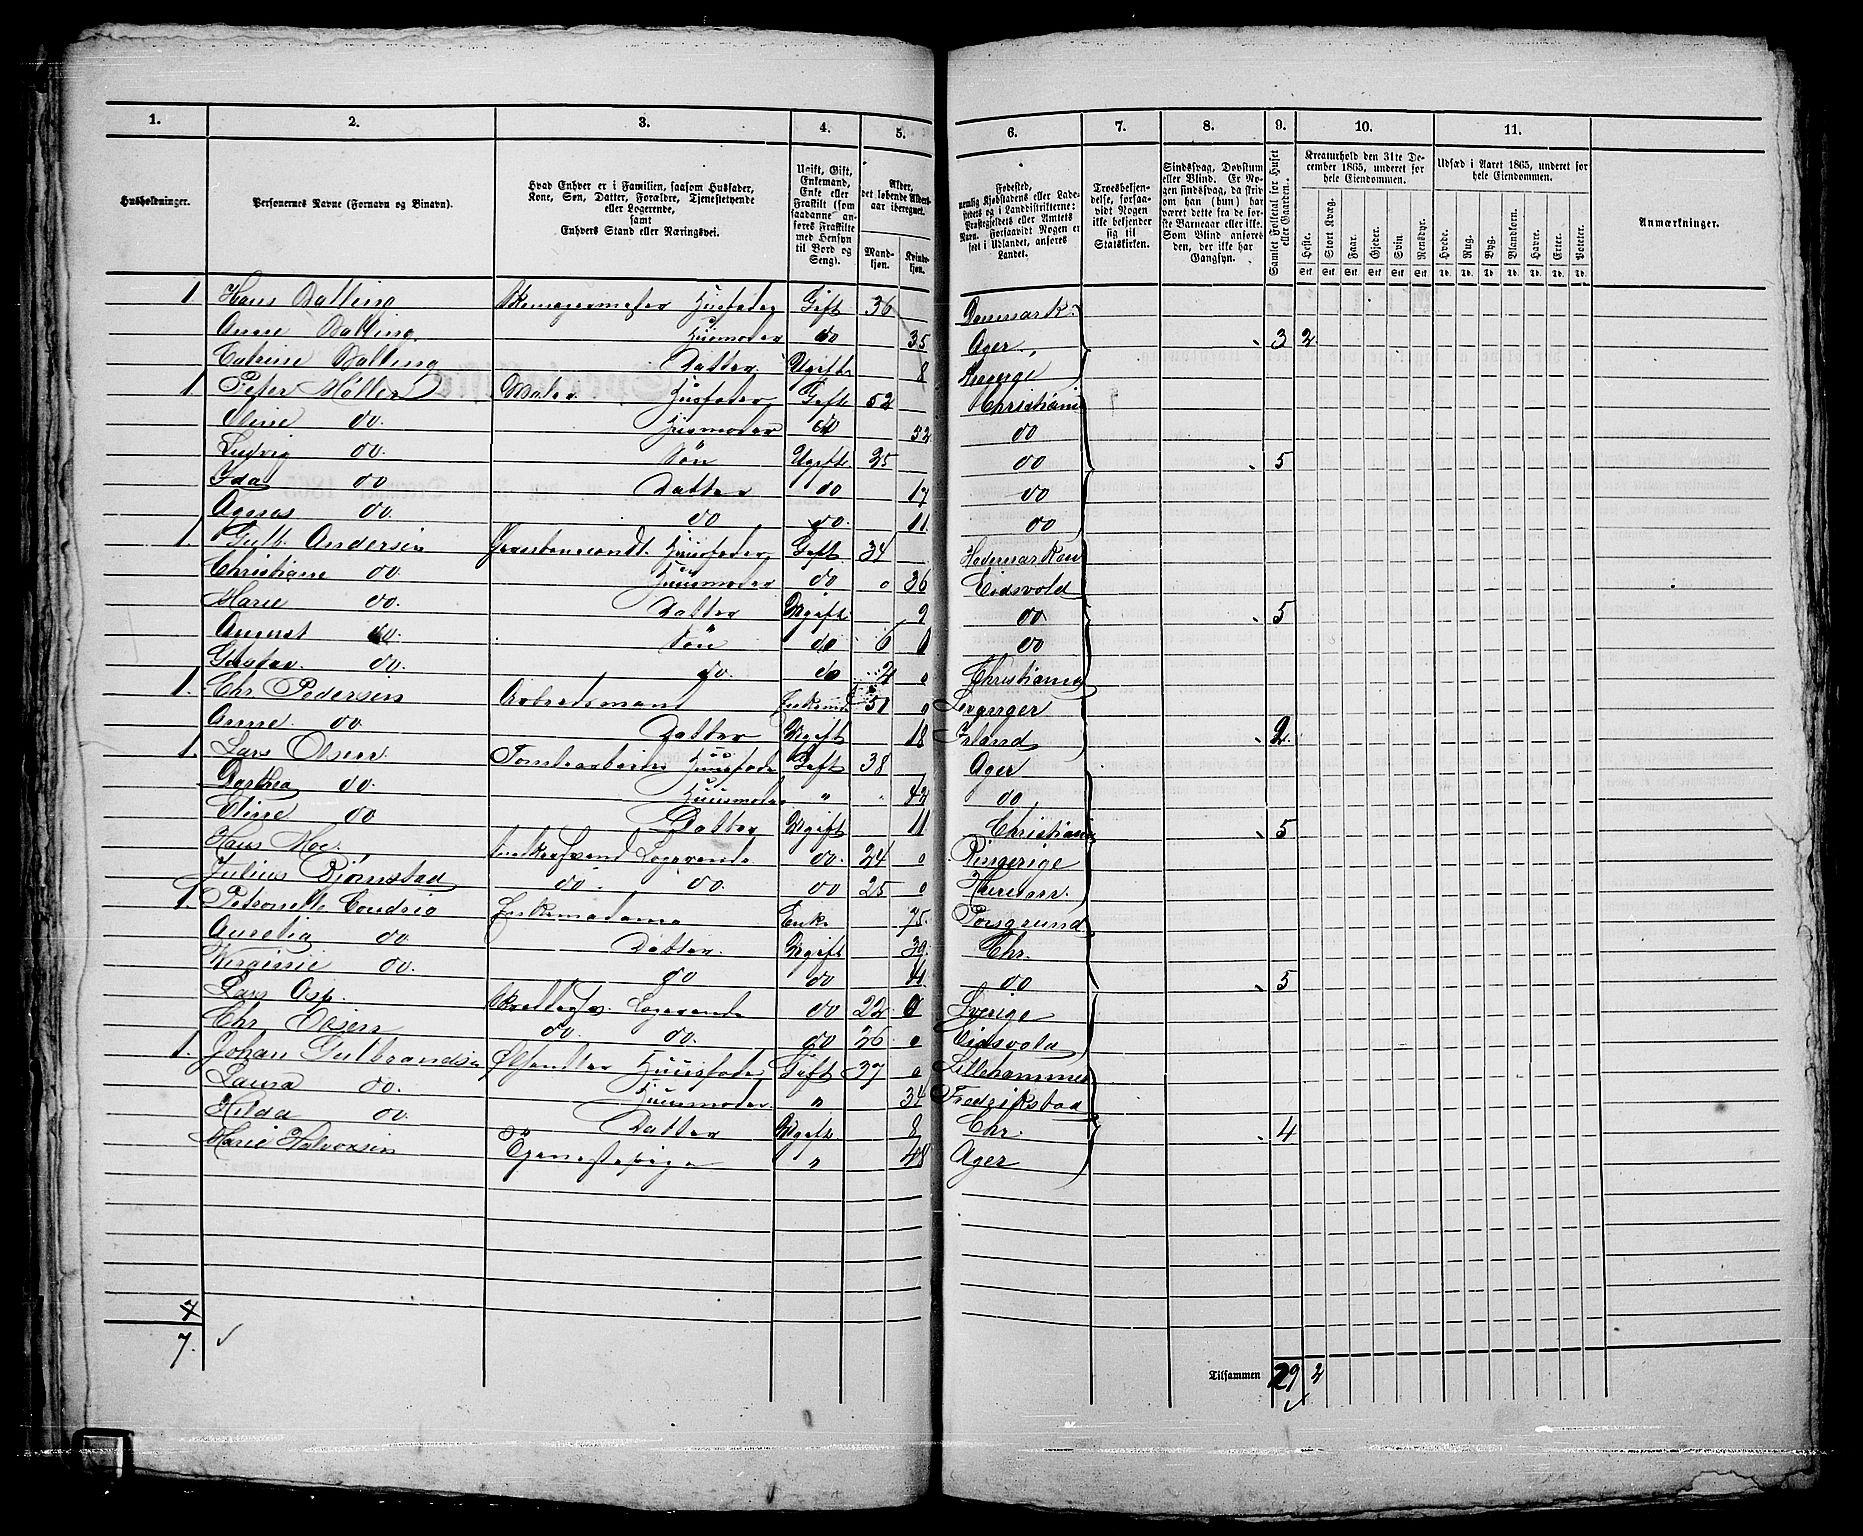 1. 2. 3. 4. 5. 6. 7. 8. 9. 10. 11.
Husholdninger.
Personernes Navne (Fornavn og Binavn).
Hvad Enhver er i Familien, saasom Husfader, Kone, Søn, Datter, Forældre, Tjenestetyende eller Logerende, samt Enhvers Stand eller Næringsvei.
Ugift, Gift, Enkemand, Enke eller Fraskilt (som saadanne anføres Fraskilte med Hensyn til Bord og Seng).
Alder, det løbende Alders-aar iberegnet.
Mandkjøn. Kvindekjøn.
Fødested, nemlig Kjøbstadens eller Ladestedets og i Landdistrikterne: Præstegjeldets eller Amtets Navn. Forsaavidt Nogen er født i Udlandet, anføres Landet.
Troesbekjendelse, forsaavidt Nogen ikke bekjender sig til Statskirken.
Sindssvag, Døvstum eller Blind. Er Nogen sindssvag, da skrives om han (hun) har været dette fra de første Barneaar eller ikke. Som Blind anføres den, der ikke har Gangsyn.
Samlet Folketal for Huset eller Gaarden.
Kreaturhold den 31te December 1865, underet for hele Eiendommen.
Heste. Stort Kvæg. Faar. Gjeder. Svin. Rensdyr.
Udsæd i Aaret 1865, underet for hele Eiendommen.
Hvede. Rug. Byg. Blandkorn. Havre. Erter. Poteter.
Anmærkninger.
1 Hans Dalling Husfader Gift 36 Danmark
Anne Dalling Huusmoder do 35 Ager 3 2
Catrine Dalling Datter Ugift 8
1 Peter Møller Maler Husfader Gift 52 Christiania
Oline do. Husmoder do 52 do
Ludvig do. Søn Ugift 25 do 5
Ida do Datter do 17 do
do. do do. 11 do
1. Gulb. Andersen Huusfader Gift 34 Hedemarken
Christiane do. Huusmoder do 36 Eidsvold
Marie do. Datter Ugift 9 do 5
August do. Søn do 6 do
Gustav do. do. do 2 Christiania
1. Chr. Pedersen Arbeidsmand Enkemd 51 Levanger
Anne do. Datter Ugift 18 2.
1 Lars Olsen Huusfader Gift 38 Ager
Dorthea do. Huusmoder " 42 do
Oline do Datter Ugift 11 Christiania 5
Hans Moe Logerende do. 24 Ringerige
Julius Bjørnstad do. do. do 25
1. Petronelle Enkemadame Enke 75. Porsgrund
Aurelia do. Datter. Ugift 39. Chr.
Virginie do. do do 41 do 5
Lars Asp. Logerende do 22 Sverige
Chr. Olsen do. do. do 26 Eidsvold
1. Johan Gulbrandsen Huusfader Gift 37 Lillehammer
Laura do. Huusmoder " 34 Fredrikstad
Hilda do. Datter Ugift 8 Chr. 4
Marie Halvorsen Tjenestepige " 48 Ager
7
7.
Tilsammen 29 2